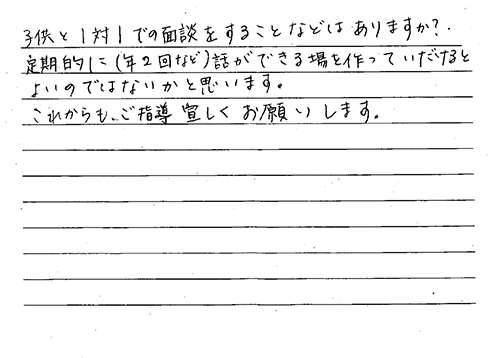 子供と1対1での面談をすることなどはありますか?.
定期的に(年2回など)話ができる場を作っていだけると
よいのではないかと思います。
これからも、ご指導宜しくお願いします。